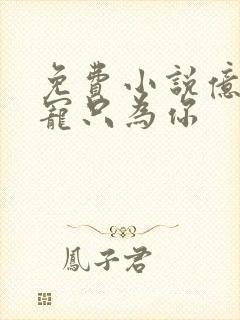 免費小說億
寵只為你
鳳子君